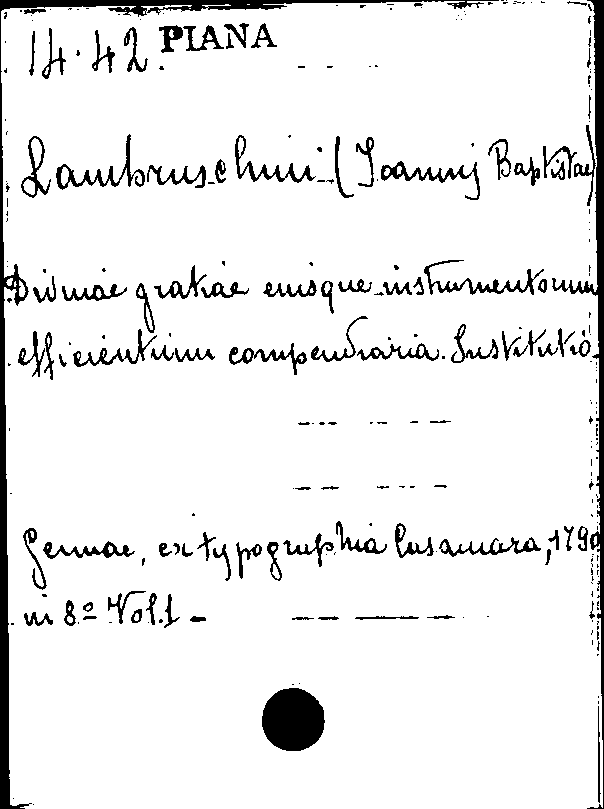 14.42. PIANA
Lambruschini (Joannis Baptistae)
Divinae gratiae eiusque instrumentorum
efficientium compendiaria Institutio
Genuae, ex typographia Casamara, 1790
in 8º Vol. 1 -